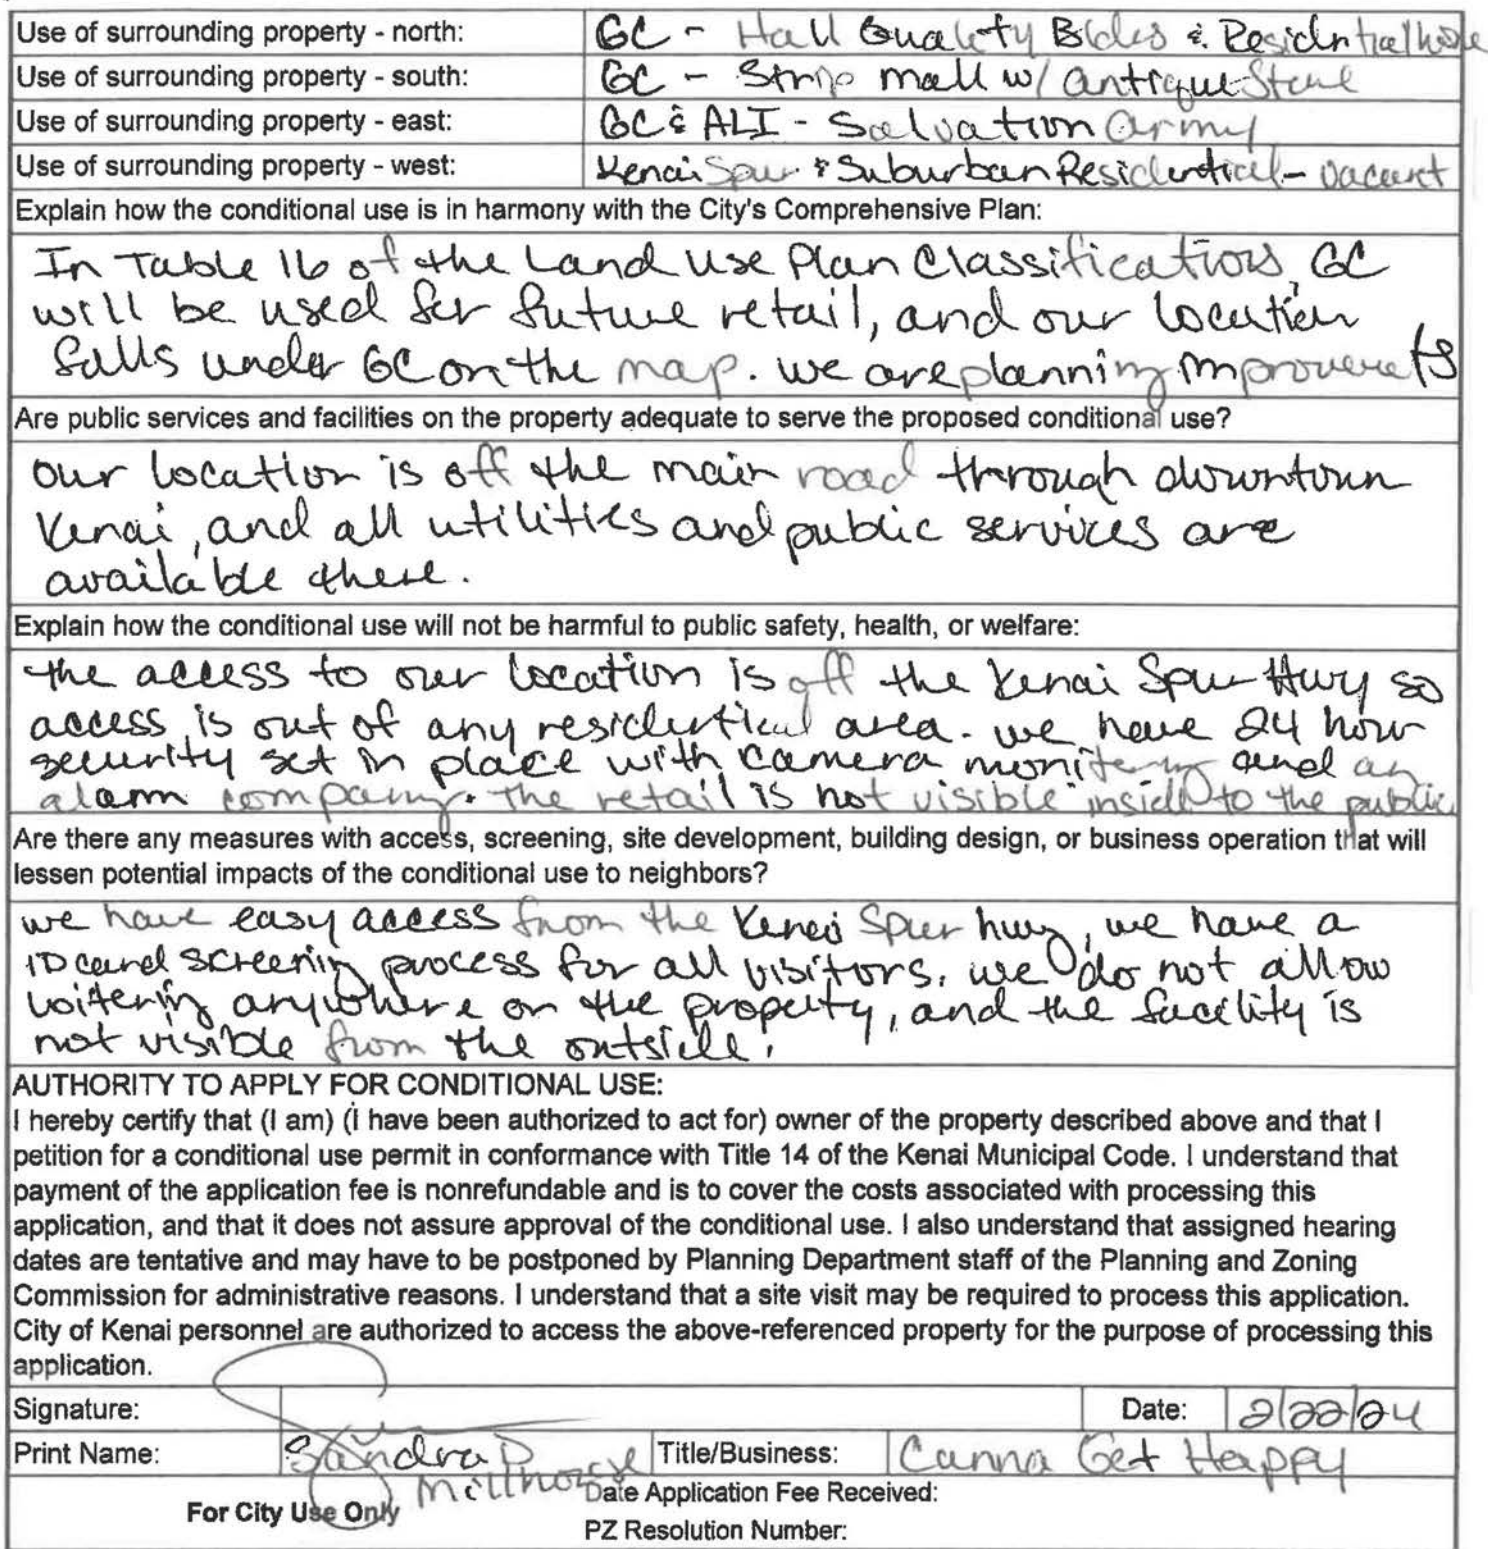 Use of surrounding property - north: GC - Hall Quality Bldrs & Residential home
Use of surrounding property - south: GC - Strip mall w/ antique Store
Use of surrounding property - east: GC & ALI - Salvation army
Use of surrounding property - west: Kenai Spur & Suburban Residential - vacant
Explain how the conditional use is in harmony with the City's Comprehensive Plan:
In Table 16 of the Land Use Plan Classifications, GC
will be used for future retail, and our location
falls under GC on the map. we are planning improvements
Are public services and facilities on the property adequate to serve the proposed conditional use?
our location is off the main road through downtown
Kenai, and all utilities and public services are
available there.
Explain how the conditional use will not be harmful to public safety, health, or welfare:
the access to our location is off the Kenai Spur Hwy so
access is out of any residential area. we have 24 hour
security set in place with camera monitering and an
alarm company. The retail is not visible inside to the public
Are there any measures with access, screening, site development, building design, or business operation that will
lessen potential impacts of the conditional use to neighbors?
we have easy access from the Kenai Spur hwy, we have a
ID card screening process for all visitors. we do not allow
loitering anywhere on the property, and the facility is
not visible from the outside.
AUTHORITY TO APPLY FOR CONDITIONAL USE:
I hereby certify that (I am) (I have been authorized to act for) owner of the property described above and that I
petition for a conditional use permit in conformance with Title 14 of the Kenai Municipal Code. I understand that
payment of the application fee is nonrefundable and is to cover the costs associated with processing this
application, and that it does not assure approval of the conditional use. I also understand that assigned hearing
dates are tentative and may have to be postponed by Planning Department staff of the Planning and Zoning
Commission for administrative reasons. I understand that a site visit may be required to process this application.
City of Kenai personnel are authorized to access the above-referenced property for the purpose of processing this
application.
Signature: Date: 2/22/24
Print Name: Sandra P Millhouse Title/Business: Canna Get Happy
For City Use Only Date Application Fee Received:
PZ Resolution Number: